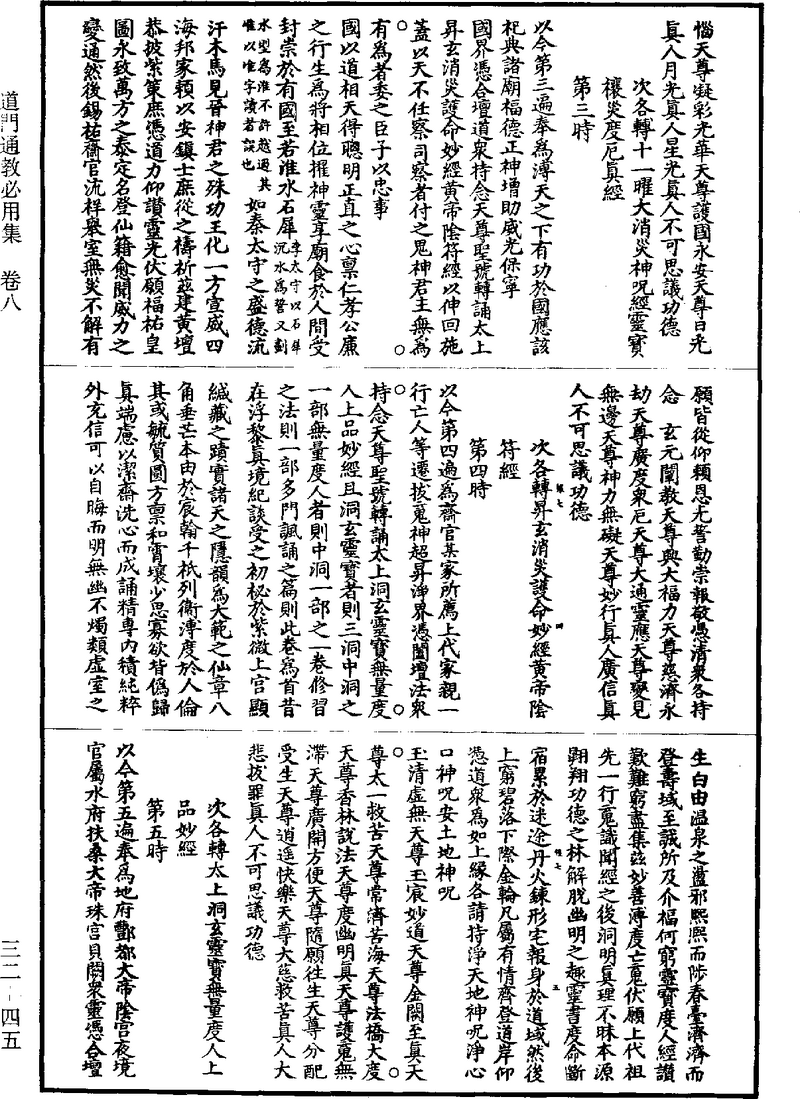 惱天尊凝彩光華天尊護國永安天尊日光
眞人月光眞人星光眞人不可思議功德
次各轉十一曜大消災神呪經靈寶
禳災度厄眞經
第三時
以今第三遍奉爲溥天之下有功於國應該
祀典諸廟福德正神增助威光保寧
國界憑合壇道衆持念天尊聖號轉誦太上
昇玄消災護命妙經黃帝陰符經以伸回施
蓋以天不任察司察者付之鬼神君主無爲
有爲者委之臣子以忠事
國以道相天得聰明正直之心禀仁孝公廉
之行生爲將相位擢神靈享廟食於人間受
封崇於有國至若淮水石犀李太守以石犀沉水爲誓又刻
水型爲淮不許越過其淮以唯字讀者誤也如秦太守之盛德流
汗木馬見晉神君之殊功王化一方宣威四
海邦家頼以安鎭士庶從之禱祈兹建黃壇
恭披紫笈庶憑道力仰讚靈光伏願福祐皇
圖永致萬方之泰定名登仙籍愈聞威力之
變通然後錫祐齋官流祥舉室無災不解有
願皆從仰頼恩光誓勤崇報敬憑清衆各持
念　玄元闡教天尊興大福力天尊慈濟永
劫天尊廣度衆厄天尊大通靈應天尊變見
無邊天尊神力無礙天尊妙行眞人廣信眞
人不可思議功德
次各轉昇玄消災護命妙經黃帝陰
符經
第四時
以今第四遍爲齋官某家所薦上代家親一
行亡人等遷拔䰟神超昇淨界憑闔壇法衆
持念天尊聖號轉誦太上洞玄靈寶無量度
人上品妙經且洞玄靈寶者則三洞中洞之
一部無量度人者則中洞一部之一卷修習
之法則一部多門諷誦之篇則此卷爲首昔
在浮黎眞境紀談受之初秘於紫微上宮顯
緘藏之蹟實諸天之隱韻爲大範之仙章八
角垂芒本由於宸翰千祇列衞溥度於人倫
其或毓質圓方禀和霄壤少思寡欲皆僞歸
眞端慮以潔齋洗心而成誦精專內積純粹
外充信可以自晦而明無幽不燭類虛室之
生白由温泉之盪邪熙熙而陟春臺濟濟而
登壽域至誠所及介福何窮靈寶度人經讚
歎難窮盡集兹妙善溥度亡䰟伏願上代祖
先一行䰟識聞經之後洞明眞理不昧本源
翺翔功德之林解脫幽明之趣靈書度命斷
宿累於迷途丹火鍊形宅報身於道域然後
上窮碧落下際金輪凡屬有情齊登道岸仰
憑道衆爲如上縁各請持淨天地神呪淨心
口神呪安土地神呪
玉清虛無天尊玉宸妙道天尊金闕至眞天
尊太一救苦天尊常濟苦海天尊法橋大度
天尊香林說法天尊度幽明眞天尊護䰟無
滯天尊廣開方便天尊隨願往生天尊分配
受生天尊逍遥快樂天尊大慈救苦眞人大
悲拔罪眞人不可思議功德
次各轉太上洞玄靈寶無量度人上
品妙經
第五時
以今第五遍奉爲地府酆都大帝陰宮夜境
官屬水府扶桑大帝珠宮貝闕衆靈憑合壇
道門通教必用集　卷八
三二-四五